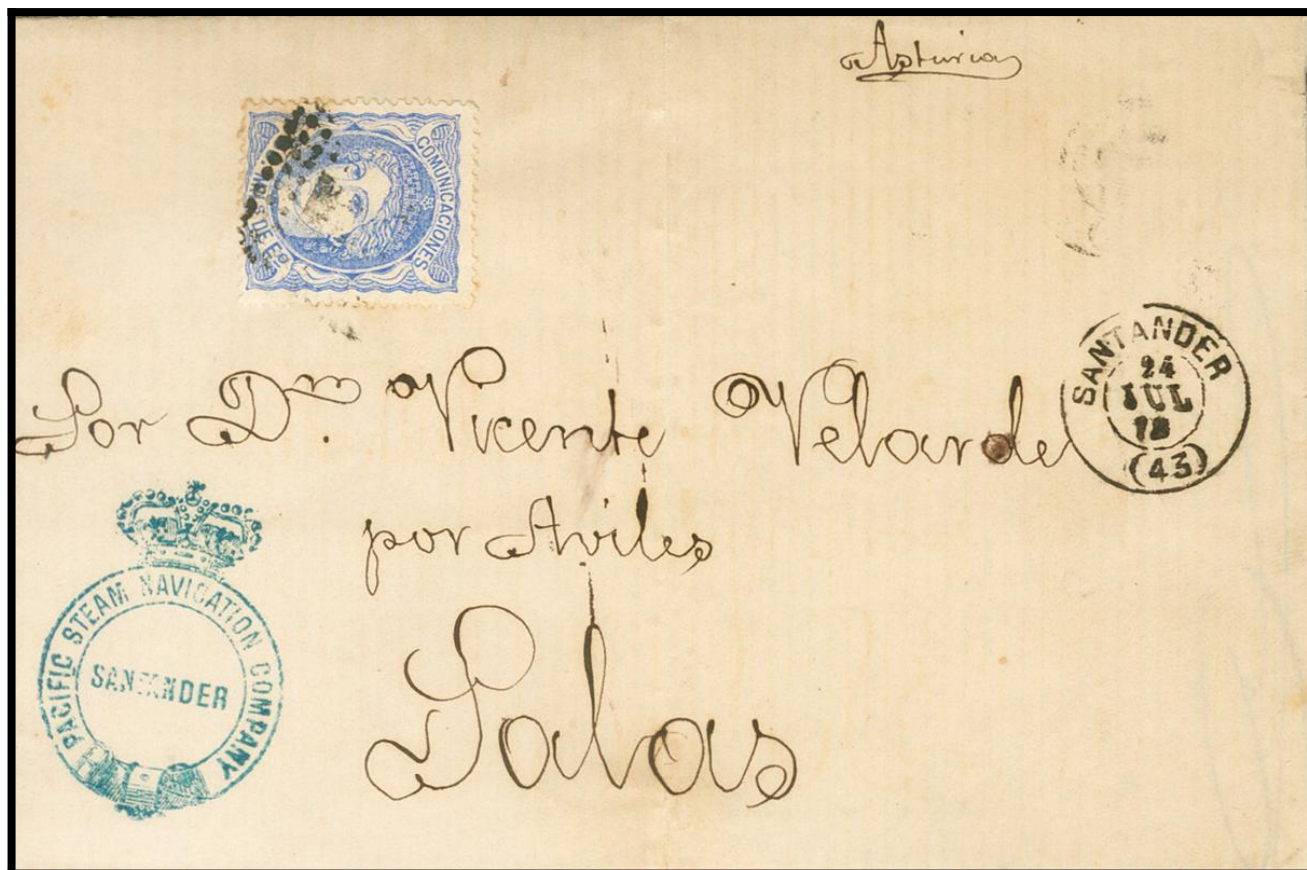 Asturias
COMUNICACIONES
MILS DE Eº
SANTANDER
24
JUL
(43)
Sor Dn. Vicente Velarde
por Aviles
Salas
PACIFIC STEAM NAVIGATION COMPANY
SANTANDER